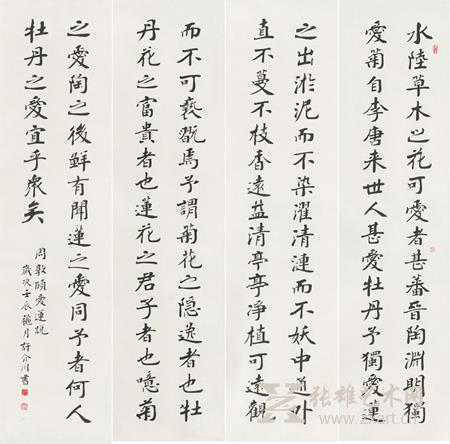 水陸草木之花可愛者甚蕃晉陶淵明獨
愛菊自李唐来世人甚愛牡丹予獨愛蓮
之出淤泥而不染濯清漣而不妖中通外
直不蔓不枝香遠益清亭亭净植可遠觀
而不可褻翫焉予謂菊花之隐逸者也牡
丹花之富貴者也蓮花之君子者也噫菊
之愛陶之後鮮有聞蓮之愛同予者何人
牡丹之愛宜乎衆矣
周敦頤愛蓮説
歲次壬辰 月許介川書
张雄艺术网
www.zxart.cn